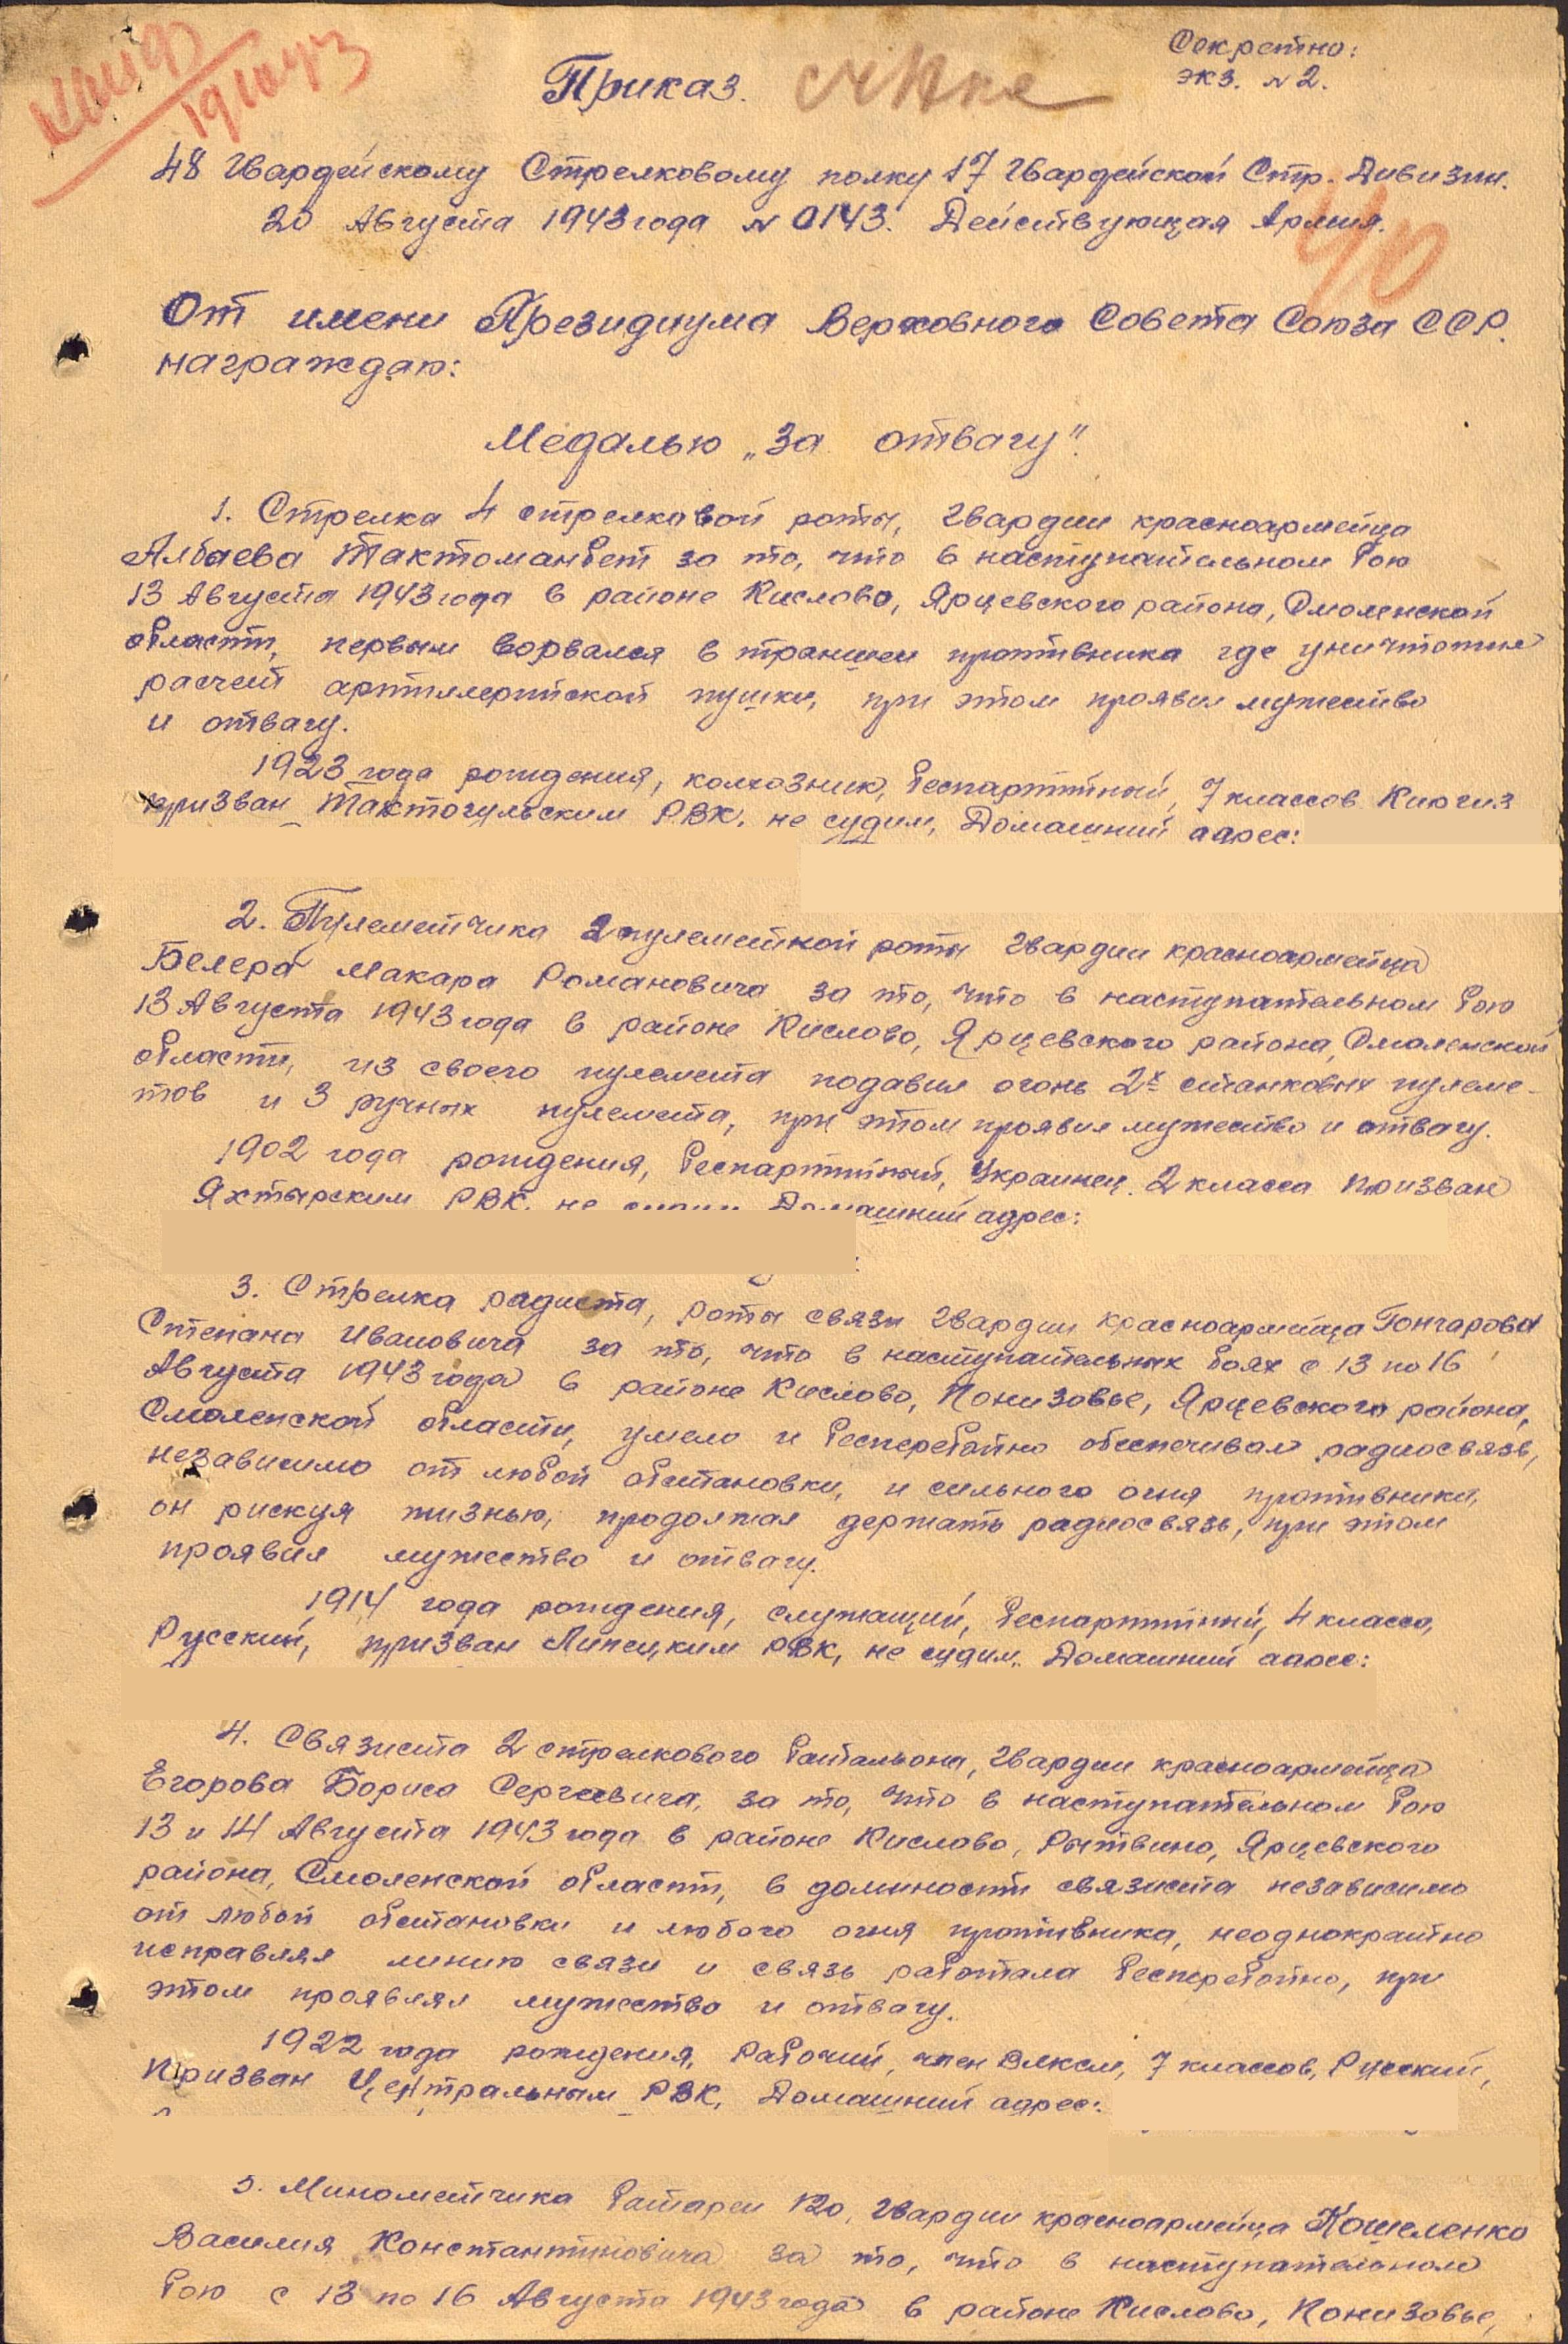 Секретно:
экз. № 2.
Приказ.
48 Гвардейскому Стрелковому полку 17 Гвардейской Стр. Дивизии.
20 Августа 1943 года № 0143. Действующая Армия.
40
От имени Президиума Верховного Совета Союза ССР.
награждаю:
Медалью „За отвагу".
1. Стрелка 4 стрелковой роты, гвардии красноармейца
Албаева Тактоманбет за то, что в наступательном бою
13 Августа 1943 года в районе Кислово, Ярцевского района, Смоленской
области, первым ворвался в траншеи противника где уничтожил
расчет артиллерийской пушки, при этом проявил мужество
и отвагу.
1923 года рождения, колхозник, беспартийный, 7 классов Киргиз
призван Токтогульским РВК, не судим, Домашний адрес:
2. Пулеметчика 2 пулеметной роты гвардии красноармейца
Белера Макара Романовича за то, что в наступательном бою
13 Августа 1943 года в районе Кислово, Ярцевского района, Смоленской
области, из своего пулемета подавил огонь 2х станковых пулеме-
тов и 3 ручных пулемета, при этом проявил мужество и отвагу.
1902 года рождения, беспартийный, Украинец. 2 класса призван
Яхтырским РВК, не судим Домашний адрес:
3. Стрелка радиста, роты связи гвардии красноармейца Гончарова
Степана Ивановича за то, что в наступательных боях с 13 по 16
Августа 1943 года в районе Кислово, Понизовье, Ярцевского района,
Смоленской области, умело и бесперебойно обеспечивал радиосвязь,
независимо от любой обстановки, и сильного огня противника,
он рискуя жизнью, продолжал держать радиосвязь, при этом
проявил мужество и отвагу.
1914 года рождения, служащий, беспартийный, 4 класса,
Русский, призван Липецким РВК, не судим. Домашний адрес:
4. Связиста 2 стрелкового батальона, гвардии красноармейца
Егорова Бориса Сергеевича, за то, что в наступательном бою
13 и 14 Августа 1943 года в районе Кислово, Рытвино, Ярцевского
района, Смоленской области, в должности связиста независимо
от любой обстановки и любого огня противника, неоднократно
исправлял линию связи и связь работала бесперебойно, при
этом проявлял мужество и отвагу.
1922 года рождения, Рабочий, член ВЛКСМ, 7 классов, Русский,
призван Центральным РВК, Домашний адрес:
5. Минометчика батареи 120, гвардии красноармейца Кошеленко
Василия Константиновича за то, что в наступательном
бою с 13 по 16 Августа 1943 года в районе Кислово, Понизовье,